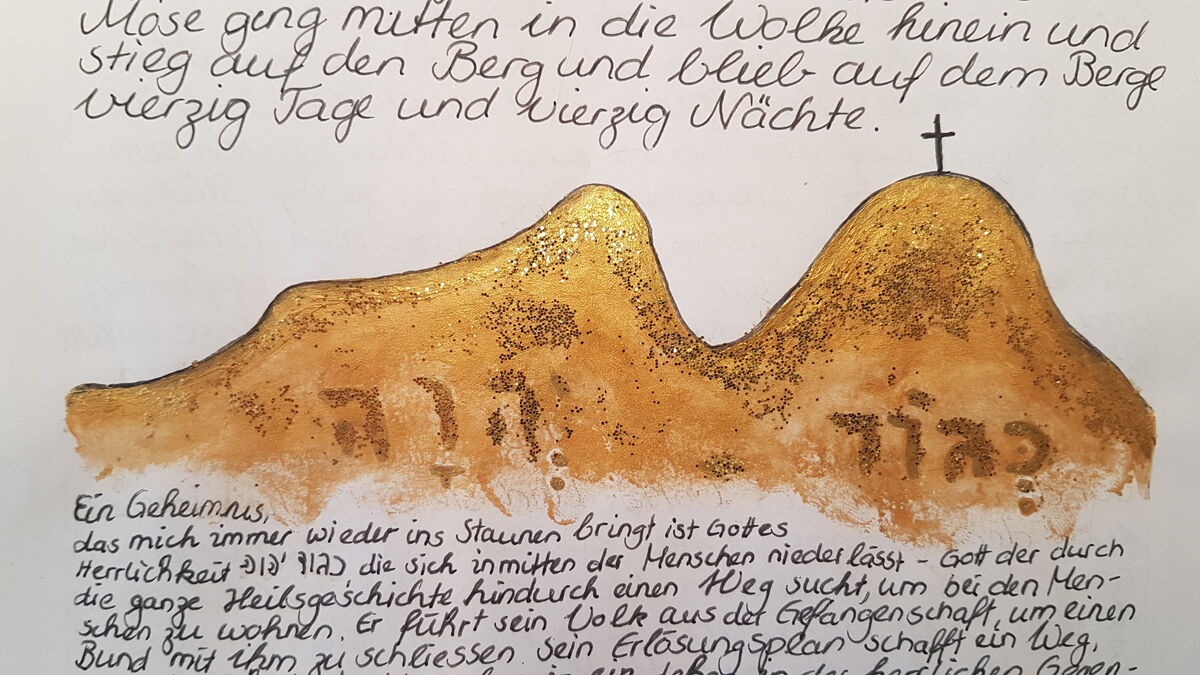 Mose ging mitten in die Wolke hinein und
stieg auf den Berg und blieb auf dem Berge
vierzig Tage und vierzig Nächte.
כְּבוֹד יְהוָה
Ein Geheimnis,
das mich immer wieder ins Staunen bringt ist Gottes
Herrlichkeit כבוד יהוה die sich inmitten der Menschen niederlässt - Gott der durch
die ganze Heilsgeschichte hindurch einen Weg sucht, um bei den Men-
schen zu wohnen. Er führt sein Volk aus der Gefangenschaft, um einen
Bund mit ihm zu schliessen. Sein Erlösungsplan schafft ein Weg,
ein Leben in der herrlichen Gegen-